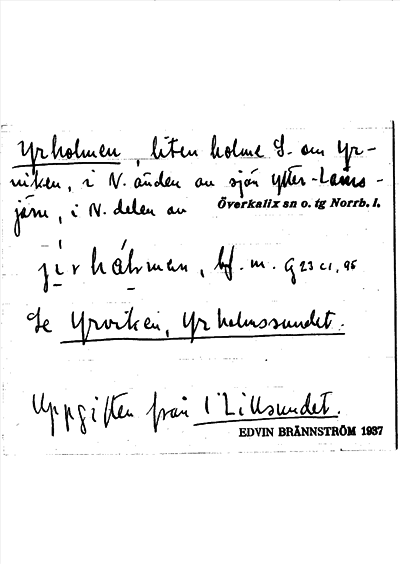 Yrholmen, liten holme S. om Yr-
viken, i N. änden av sjön Ytter-Lans-
järv, i N. delen av Överkalix sn o. tg Norrb. l.
bf. m. G 23 c1, 96
Se Yrviken, Yrholmssundet.
Uppgiften från 1 Lillsundet.
EDVIN BRÄNNSTRÖM 1937